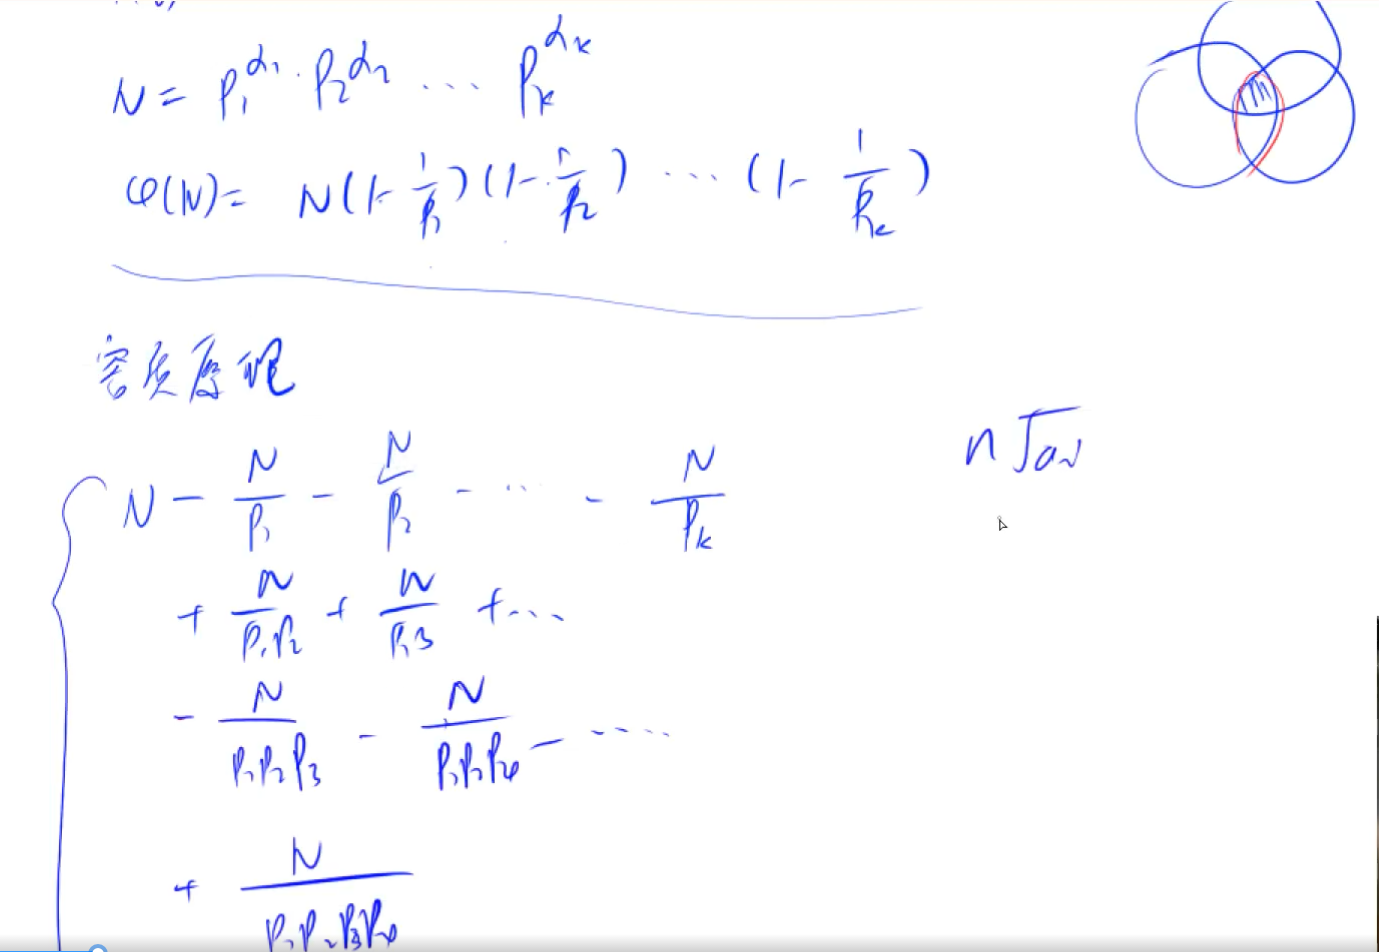 N = P₁^α₁ · P₂^α₂ ... Pₖ^αₖ
φ(N) = N(1-1/P₁)(1-1/P₂) ... (1-1/Pₖ)
容斥原理
N - N/P₁ - N/P₂ - ... - N/Pₖ
n√aᵢ
+ N/P₁P₂ + N/P₁P₃ + ...
- N/P₁P₂P₃ - N/P₁P₂P₄ - ....
+ N/P₁P₂P₃P₄